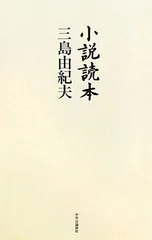 小説読本
三島由紀夫
中央公論新社